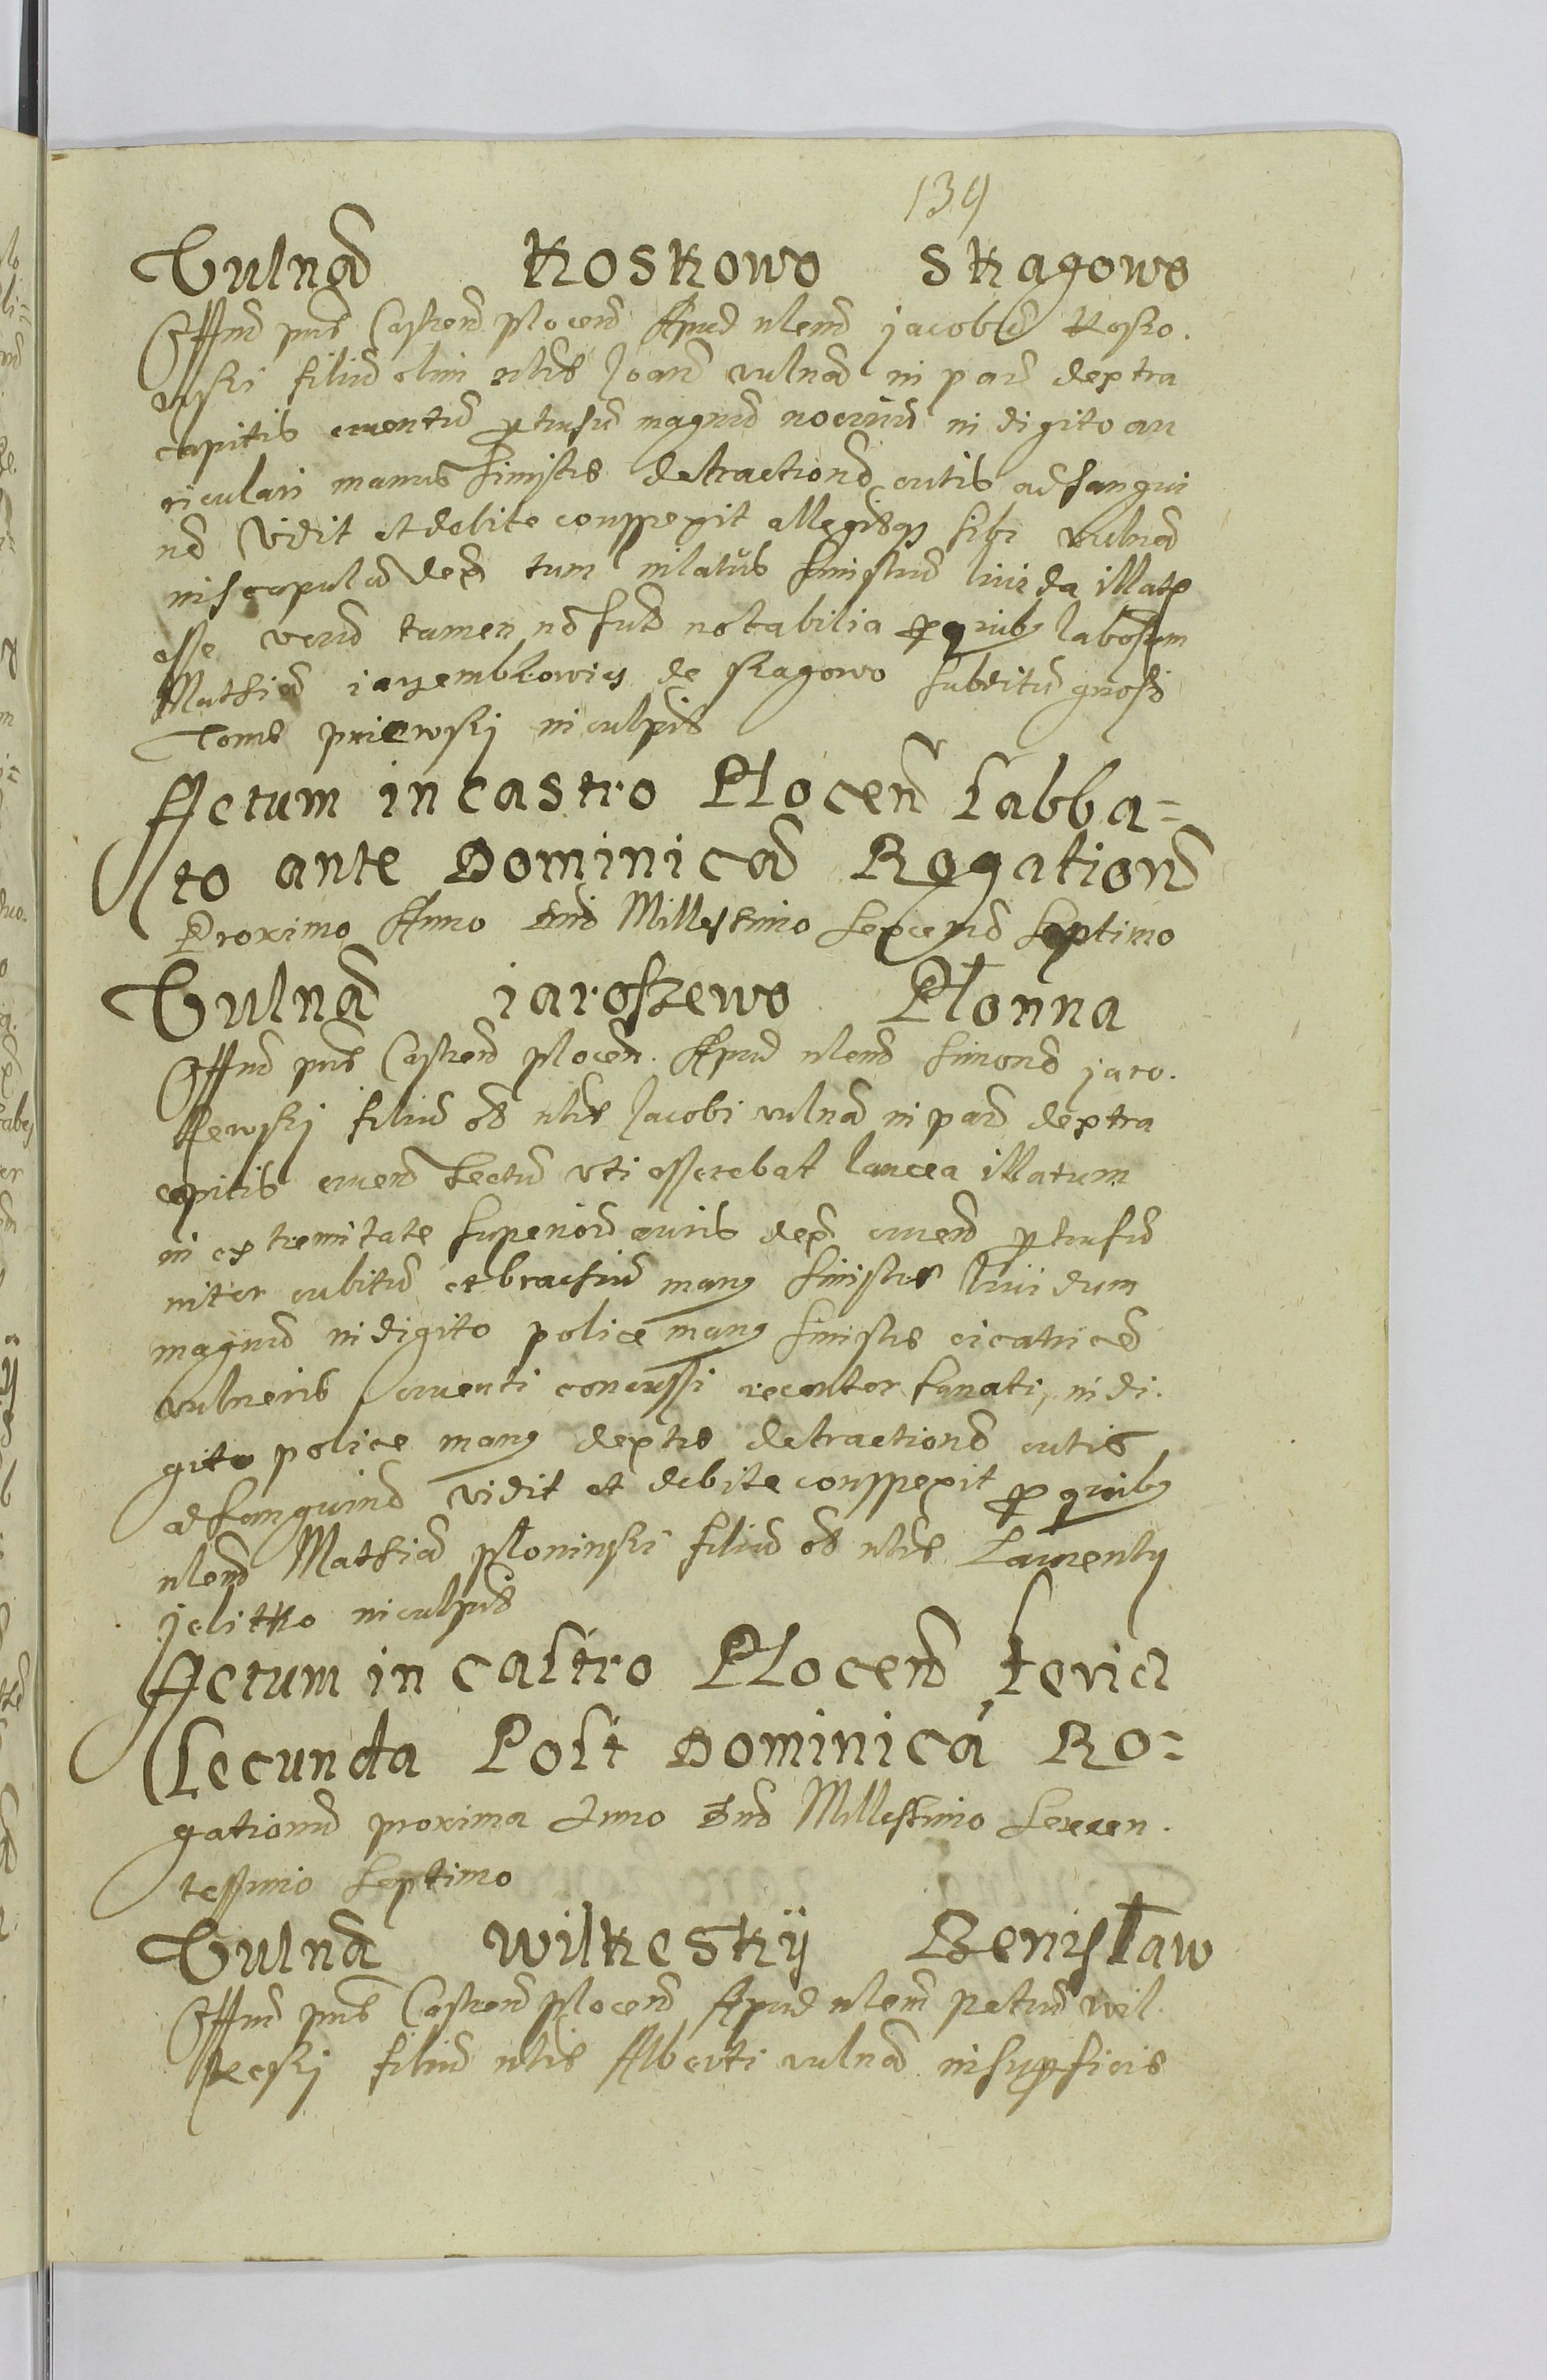 139
Vulna Koskowo Skagowo
Offim pns Castren plocen Apud nlem jacobu Kosko.
wski filiu olim nlis Joan vulna in par dextra
capitis cruentu ptusu magnu nociuu in digito au
riculari manus sinistre detractione cutis ad sangui
ne vidit et debite conspexit allegasqz sibi vulna
in scapula dex tum in latus sinistru liuida illata
esse veru tamen no sut notabilia p quibz laboriosum
Mathia de skagowo subditu gnosi
Tome in culpās
Actum in castro Plocen Sabba=
to ante Dominica Rogation
Proximo Anno Dni Millesimo Sexcen Septimo
Vulna jaroszewo Płonna
Offim pns Castren plocen. Apud nlem Simone jaro.
szewskj filiu ol nlis Jacobi vulna in par dextra
capitis cruen sectu vti asserebat lancea illatum
in extremitate superiori auris dex cruen ptusu
inter cubitu et brachiu manz sinistre liuidum
magnu in digito police manz sinistre cicatrice
vulneris cruenti concussi recenter sanati, in di.
gito police manz dextre detractione cutis
ad sanguine vidit et debite conspexit p quibz
nlem Mathia płoninski filiu ol nlis Laurentij
jelitko inculpās
Actum in castro Plocen feria
Secunda Post Dominicá Ro=
gationu proxima Anno Dni Millesimo Sexcen.
tesimo Septimo
Vulna Wilkeskÿ Benisław
Offim pns Castren plocen Apud nlem petru wil
keskj filiu nlis Alberti vulna in supficie